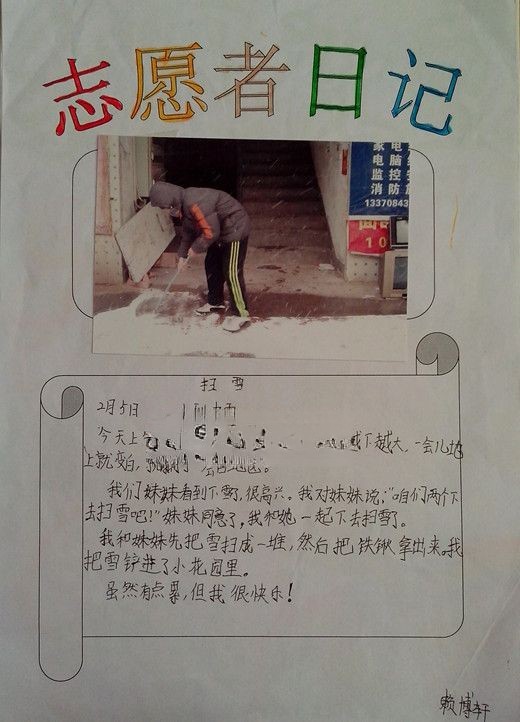 志愿者日记
家电维
电脑安
监控
消防
13370843
10
扫雪
2月5日
今天上 越下越大，一会儿地
上就变白，
我们妹妹看到下雪，很高兴。我对妹妹说：“咱们两个下
去扫雪吧！”妹妹同意了，我和她一起下去扫雪了。
我和妹妹先把雪扫成一堆，然后把铁锹拿出来，我
把雪铲进了小花园里。
虽然有点累，但我很快乐！
赖博轩